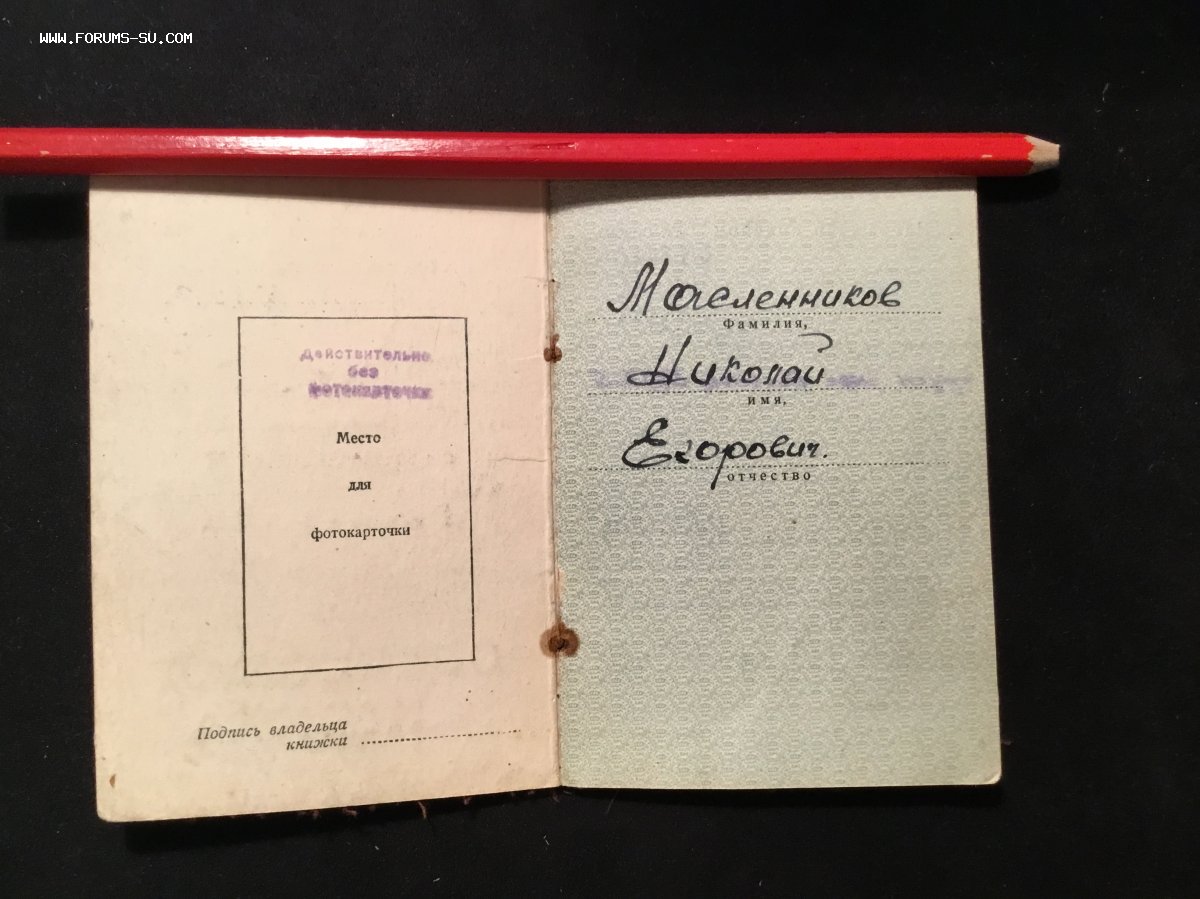 WWW.FORUMS-SU.COM
Действительно
без
фотокарточки
Место
для
фотокарточки
Подпись владельца
книжки
Масленников
Фамилия,
Николай
имя,
Егорович.
отчество